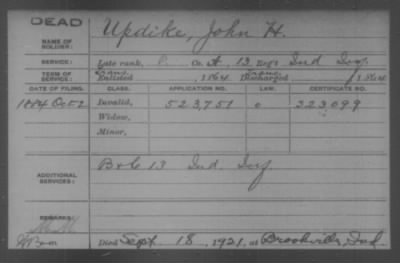 DEAD
NAME OF SOLDIER: Updike, John H.
SERVICE: Late rank, P. Co. A, 13 Reg't Ind Inf.
TERM OF SERVICE: Enlisted , 1864 Discharged , 1864
DATE OF FILING. CLASS. APPLICATION NO. LAW. CERTIFICATE NO.
1884 Oct 2 Invalid, 523,751 323099
Widow,
Minor,
ADDITIONAL SERVICES: B & C 13 Ind Inf.
REMARKS:
Died Sept 18, 1921, at Brookville, Ind.